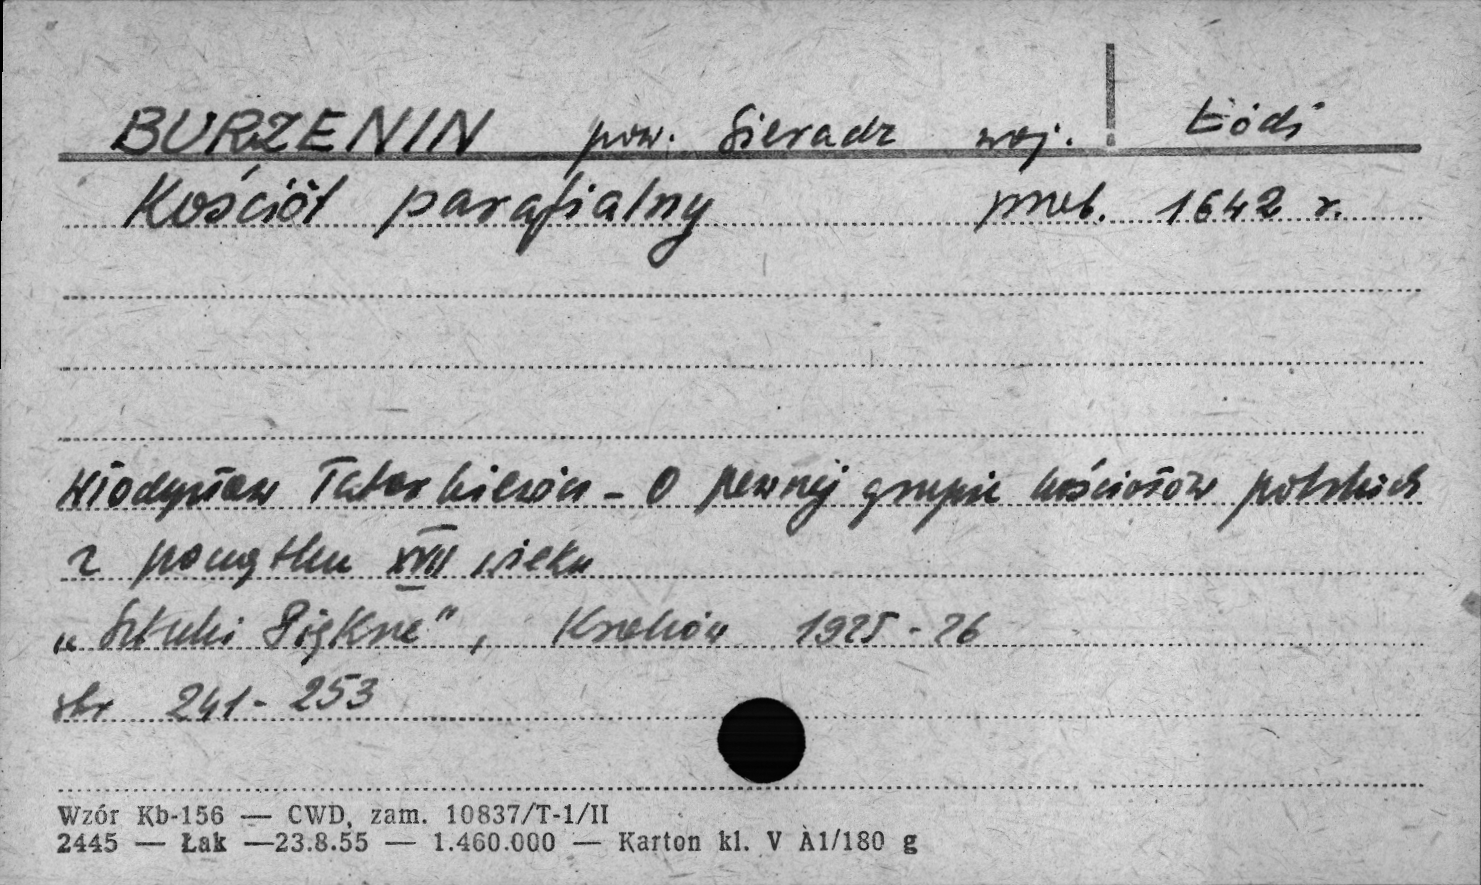 BURZENIN pow. Sieradz woj. Łódź
Kościół parafialny przeb. 1642 r.
Władysław Tatarkiewicz - O pewnej grupie kościołów polskich
z początku XVII wieku
„Sztuki Piękne", Kraków 1925-26
str 241-253
Wzór Kb-156 — CWD, zam. 10837/T-1/II
2445 — Łak —23.8.55 — 1.460.000 — Karton kl. V A1/180 g